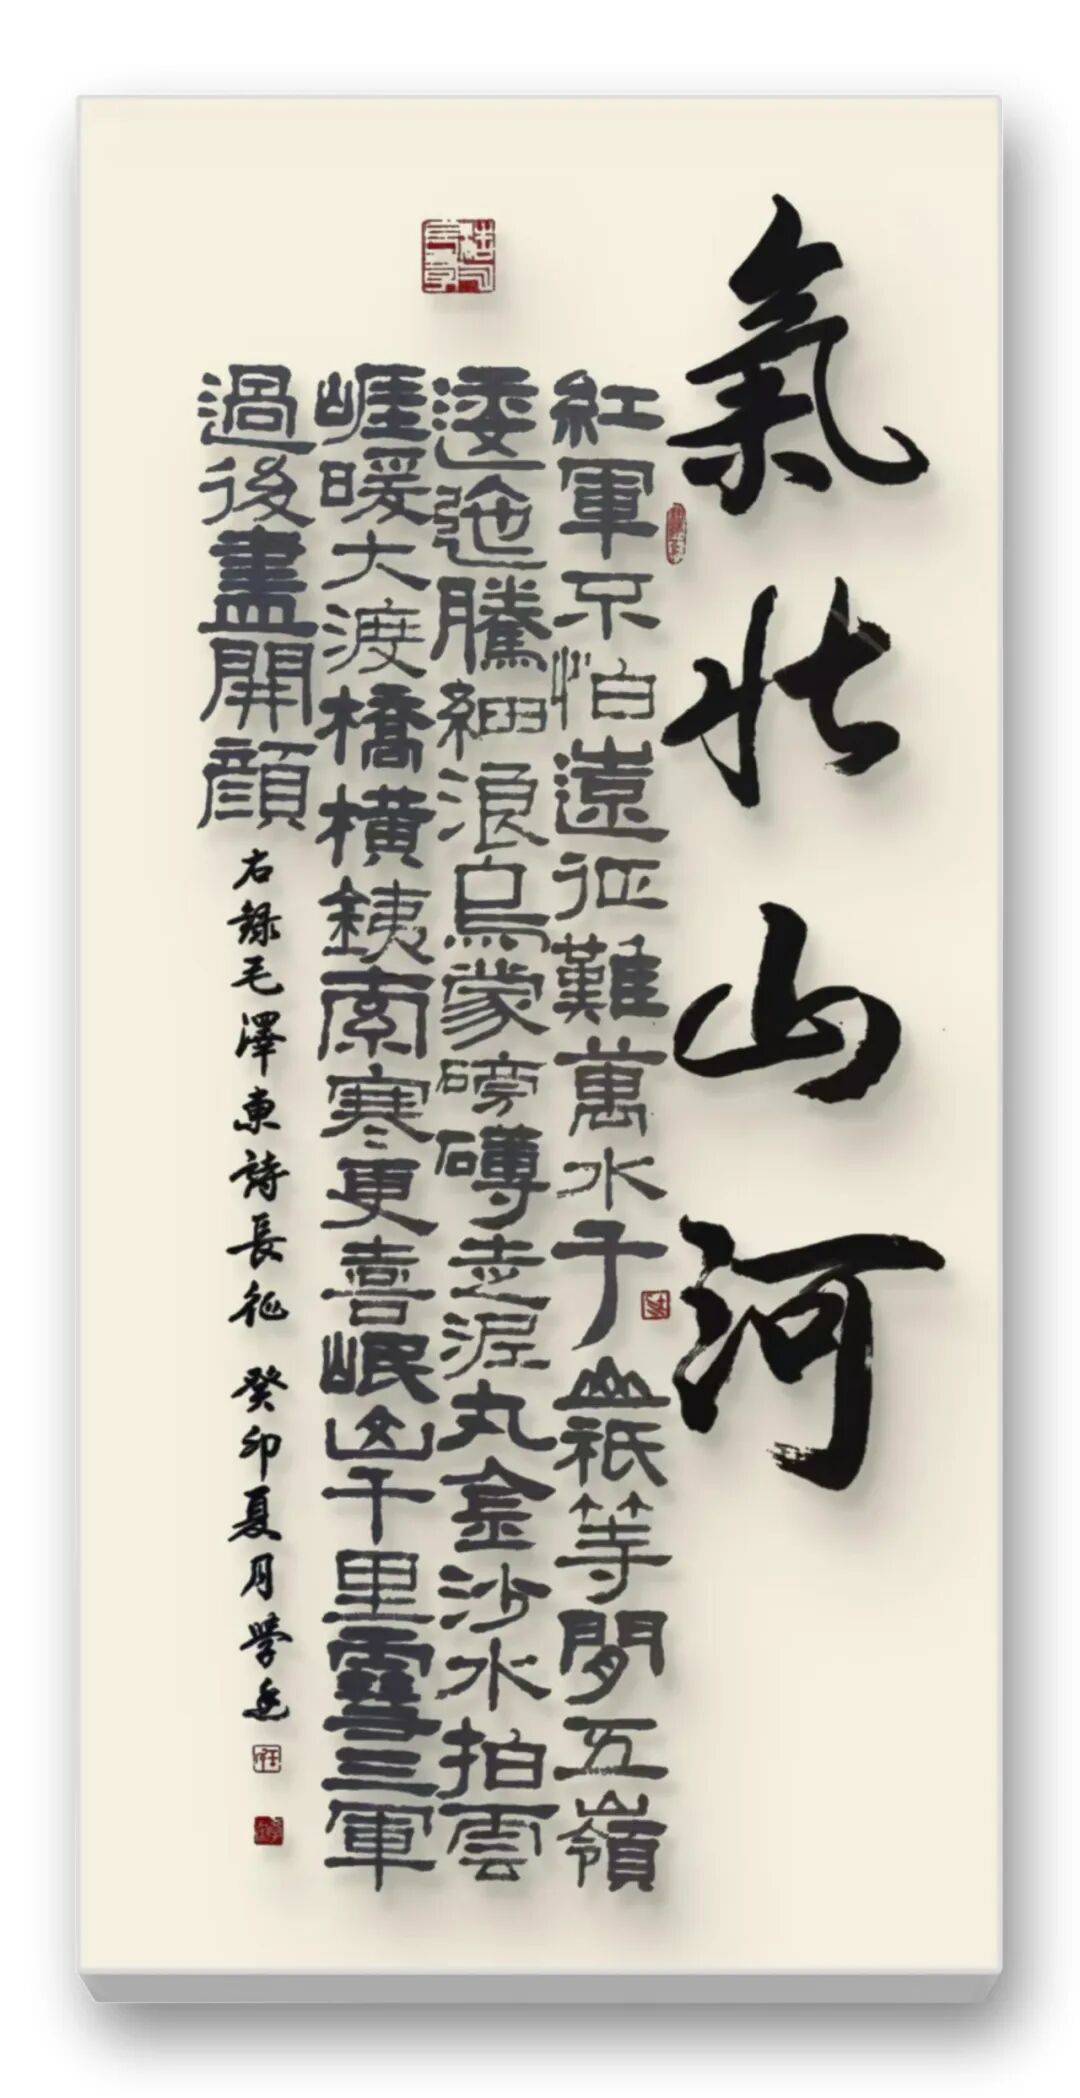 氣壯山河
紅軍不怕遠征難萬水千山祇等閒五嶺
逶迤騰細浪烏蒙磅礴走泥丸金沙水拍雲
崖暖大渡橋橫銕索寒更喜岷山千里雪三軍
過後盡開顏
右錄毛澤東詩長征 癸卯夏月學